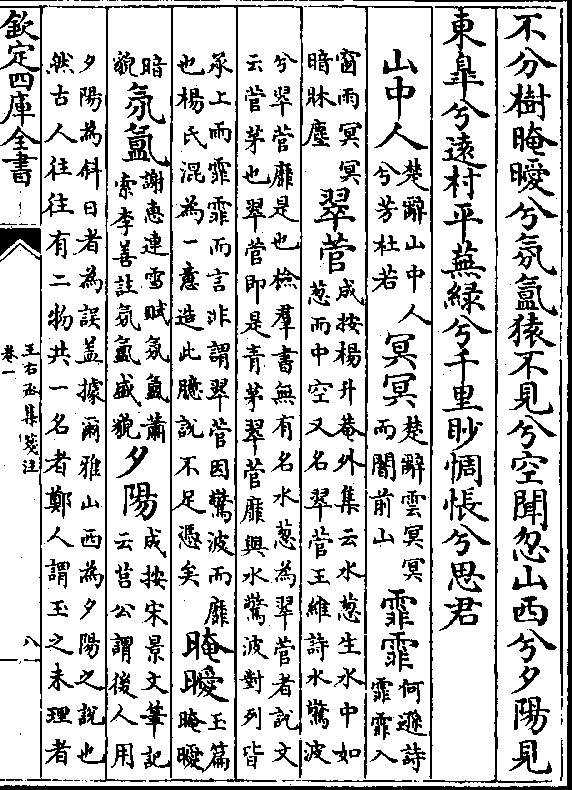 不分樹晻曖兮氛氳猿不見兮空聞忽山西兮夕陽見
東臯兮遠村平蕪綠兮千里眇惆悵兮思君
山中人
楚辭山中人
兮芳杜若
冥冥
楚辭雲冥冥
而闇前山
霏霏
何遜詩
霏霏入
窗雨冥冥
暗牀塵
翠菅
成按楊升菴外集云水葱生水中如
葱而中空又名翠菅王維詩水驚波
兮翠菅靡是也檢羣書無有名水葱為翠菅者說文
云菅茅也翠菅即是青茅翠菅靡與水驚波對列皆
承上而霏霏而言非謂翠菅因驚波而靡
也楊氏混為一意造此臆說不足憑矣
晻曖
玉篇
晻曖
暗
貌
氛氳
謝惠連雪賦氛氳蕭
索李善註氛氳盛貌
夕陽
成按宋景文筆記
云莒公謂後人用
夕陽為斜日者為誤蓋據爾雅山西為夕陽之說也
然古人往往有二物共一名者鄭人謂玉之未理者
欽定四庫全書
王右丞集箋注
卷一
八